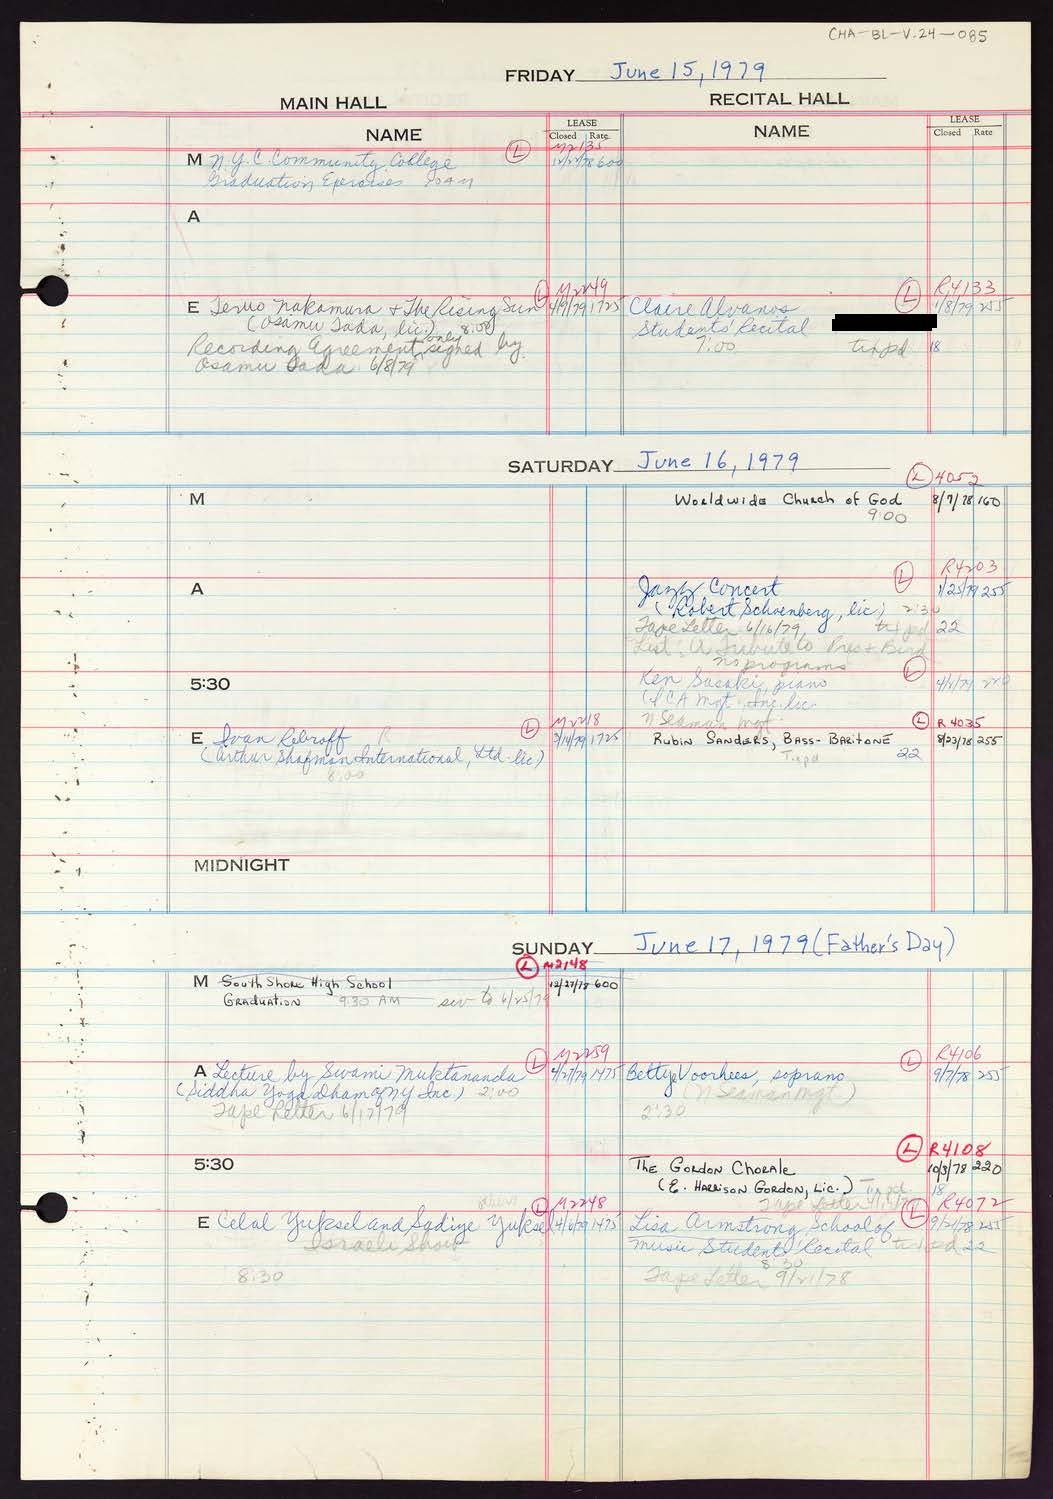 CHA-BL-V.24-085
FRIDAY June 15, 1979
MAIN HALL
RECITAL HALL
NAME
LEASE
Closed Rate
NAME
LEASE
Closed Rate
L M2135
M N.Y.C. Community College 12/27/78 600
Graduation Exercises 10AM
A
L M2249
E Teruo Nakamura + The Rising Sun 4/9/79 1725
(Osamu Tada, lic.) 8:00
Recording Agreement only signed by
Osamu Tada 6/8/79
L R4133
Claire Alvanos 1/8/79 255
Students' Recital
7:00 tix pd 18
SATURDAY June 16, 1979
M
L 4052
Worldwide Church of God 8/7/78 160
9:00
A
L R4203
Jazz Concert 1/25/79 255
(Robert Schoenberg, lic.) 2:30
Tape Letter 6/16/79 tix pd 22
List: A Tribute to Pres + Bird
no programs
5:30
L
Ken Sasaki, piano
Mgt. Inc. lic.
N Seaman Mgt.
L M2218
E Ivan Rebroff R 3/14/79 1725
(Arthur Shafman International, Ltd. lic)
8:00
L R 4035
Rubin Sanders, Bass-Baritone 8/23/78 255
Tix pd 22
MIDNIGHT
SUNDAY June 17, 1979 (Father's Day)
L M2148
M South Shore High School 12/27/78 600
Graduation 9:30 AM to 6/25/79
L M2259
A Lecture by Swami Muktananda 4/27/79 1475
(Siddha Yoga Dham of NY Inc.) 2:00
Tape Letter 6/17/79
L R4106
Betty Voorhees, soprano 9/7/78 255
(N Seaman Mgt.)
2:30
5:30
L R4108
The Gordon Chorale 10/3/78 220
(E. Harrison Gordon, Lic.) Tix pd 18
Tape Letter
L M2248
E Celal Yuksel and Sadiye Yuksel 4/6/79 1475
Israeli Show
8:30
L R4072
Lisa Armstrong School of 9/21/78 255
Music Students' Recital tix pd 22
8:30
Tape Letter 9/21/78